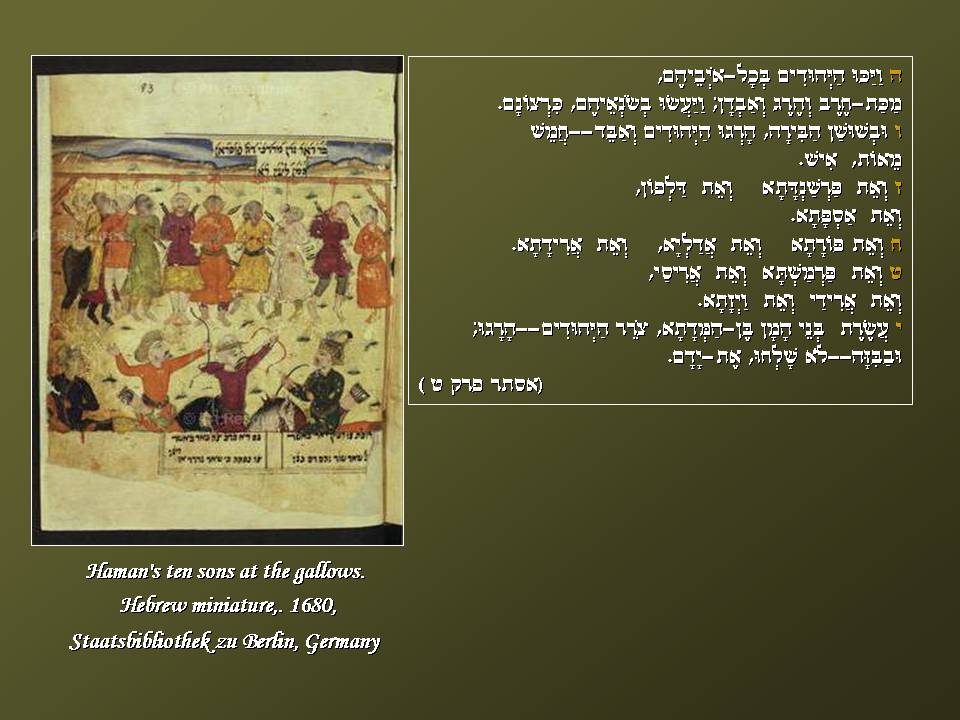 ה וַיַּכּוּ הַיְּהוּדִים בְּכָל-אֹיְבֵיהֶם,
מַכַּת-חֶרֶב וְהֶרֶג וְאַבְדָן; וַיַּעֲשׂוּ בְשֹׂנְאֵיהֶם, כִּרְצוֹנָם.
ו וּבְשׁוּשַׁן הַבִּירָה, הָרְגוּ הַיְּהוּדִים וְאַבֵּד--חֲמֵשׁ
מֵאוֹת, אִישׁ.
ז וְאֵת פַּרְשַׁנְדָּתָא וְאֵת דַּלְפוֹן,
וְאֵת אַסְפָּתָא.
ח וְאֵת פּוֹרָתָא וְאֵת אֲדַלְיָא, וְאֵת אֲרִידָתָא.
ט וְאֵת פַּרְמַשְׁתָּא וְאֵת אֲרִיסַי,
וְאֵת אֲרִידַי וְאֵת וַיְזָתָא.
י עֲשֶׂרֶת בְּנֵי הָמָן בֶּן-הַמְּדָתָא, צֹרֵר הַיְּהוּדִים--הָרָגוּ;
וּבַבִּזָּה--לֹא שָׁלְחוּ, אֶת-יָדָם.
(אסתר פרק ט )
Haman's ten sons at the gallows.
Hebrew miniature,. 1680,
Staatsbibliothek zu Berlin, Germany